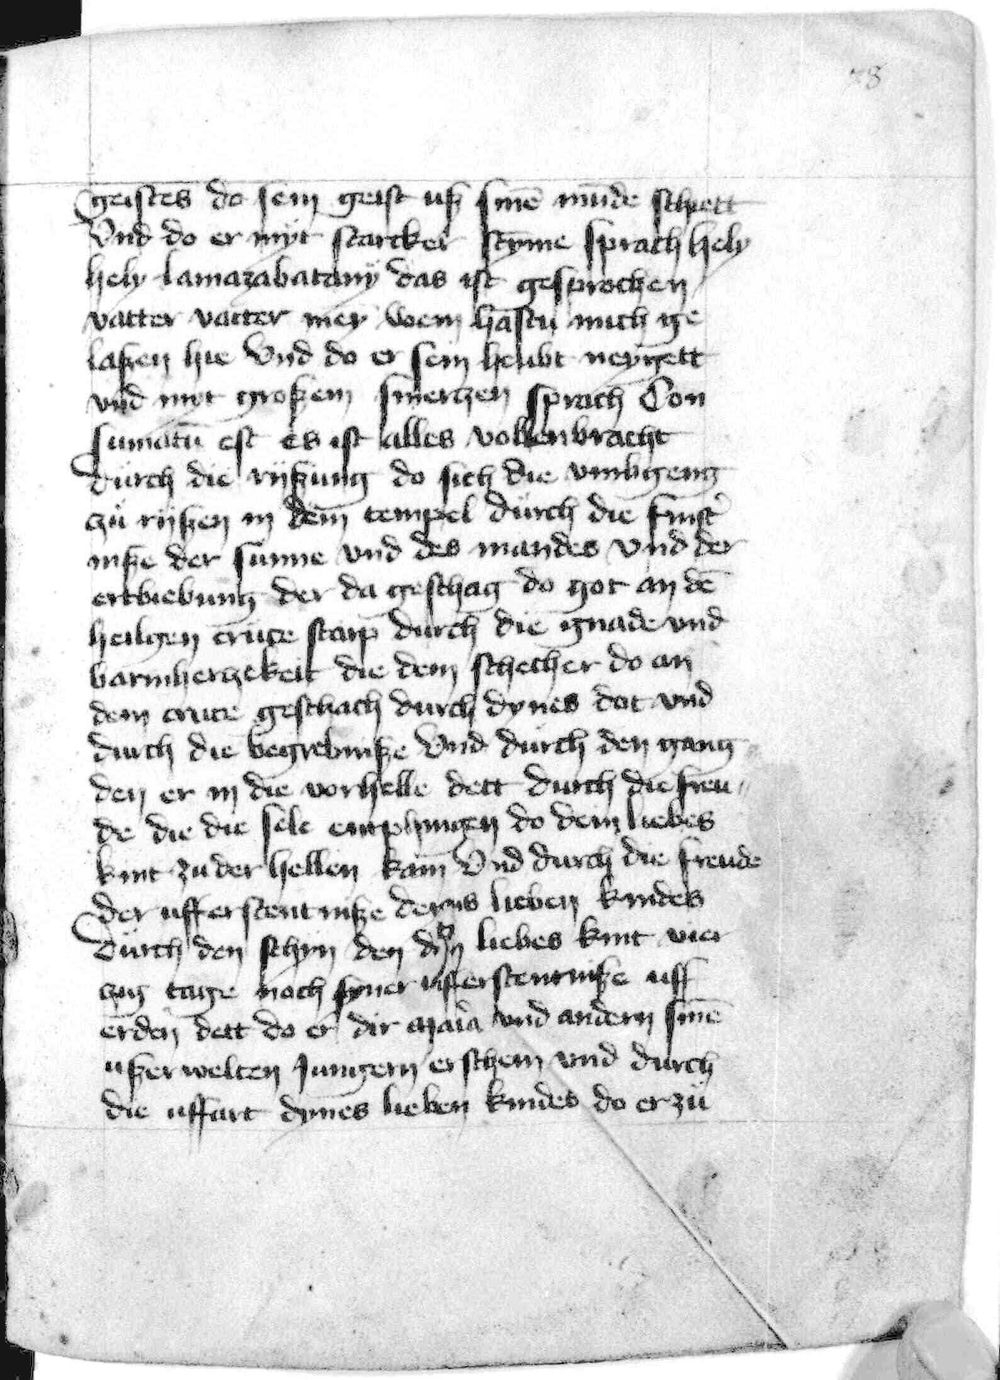 78
geistes do sein geist uß sinē munde schiett
Vnd do er myt starcker styme sprach hely
hely lamazabatany das ist gesprochen
vatter vatter mey wem hastu mich ge
laßen hie Vnd do er sein heubt neygett
vnd myt großem smertzen sprach Con
sumatū est es ist alles vollenbracht
Durch die ryßung do sich die vmbgeng
zü ryßen in dem tempel durch die finst̉
niße der sunne vnd des mandes vnd der
ertbiebung der da geschag do got an dē
heilgen cruce starp durch die gnade vnd
barmhertzekeit die dem schecher do an
dem cruce geschach durch dynes dot vnd
durch die begrebniße Vnd durch den gang
den er in die vorhelle dett durch die freu〃
de die die sele entphingen do dem liebes
kint zu der hellen kam Vnd durch die freude
der ufferstentniße deyns lieben kindes
Durch den schyn den dyn liebes kint vier
zig tage noch syner ufferstentniße uff
erden dett do er dir maria vnd andern sinē
ußerwelten Jungern erschein vnd durch
die uffart dynes lieben kindes do er zü